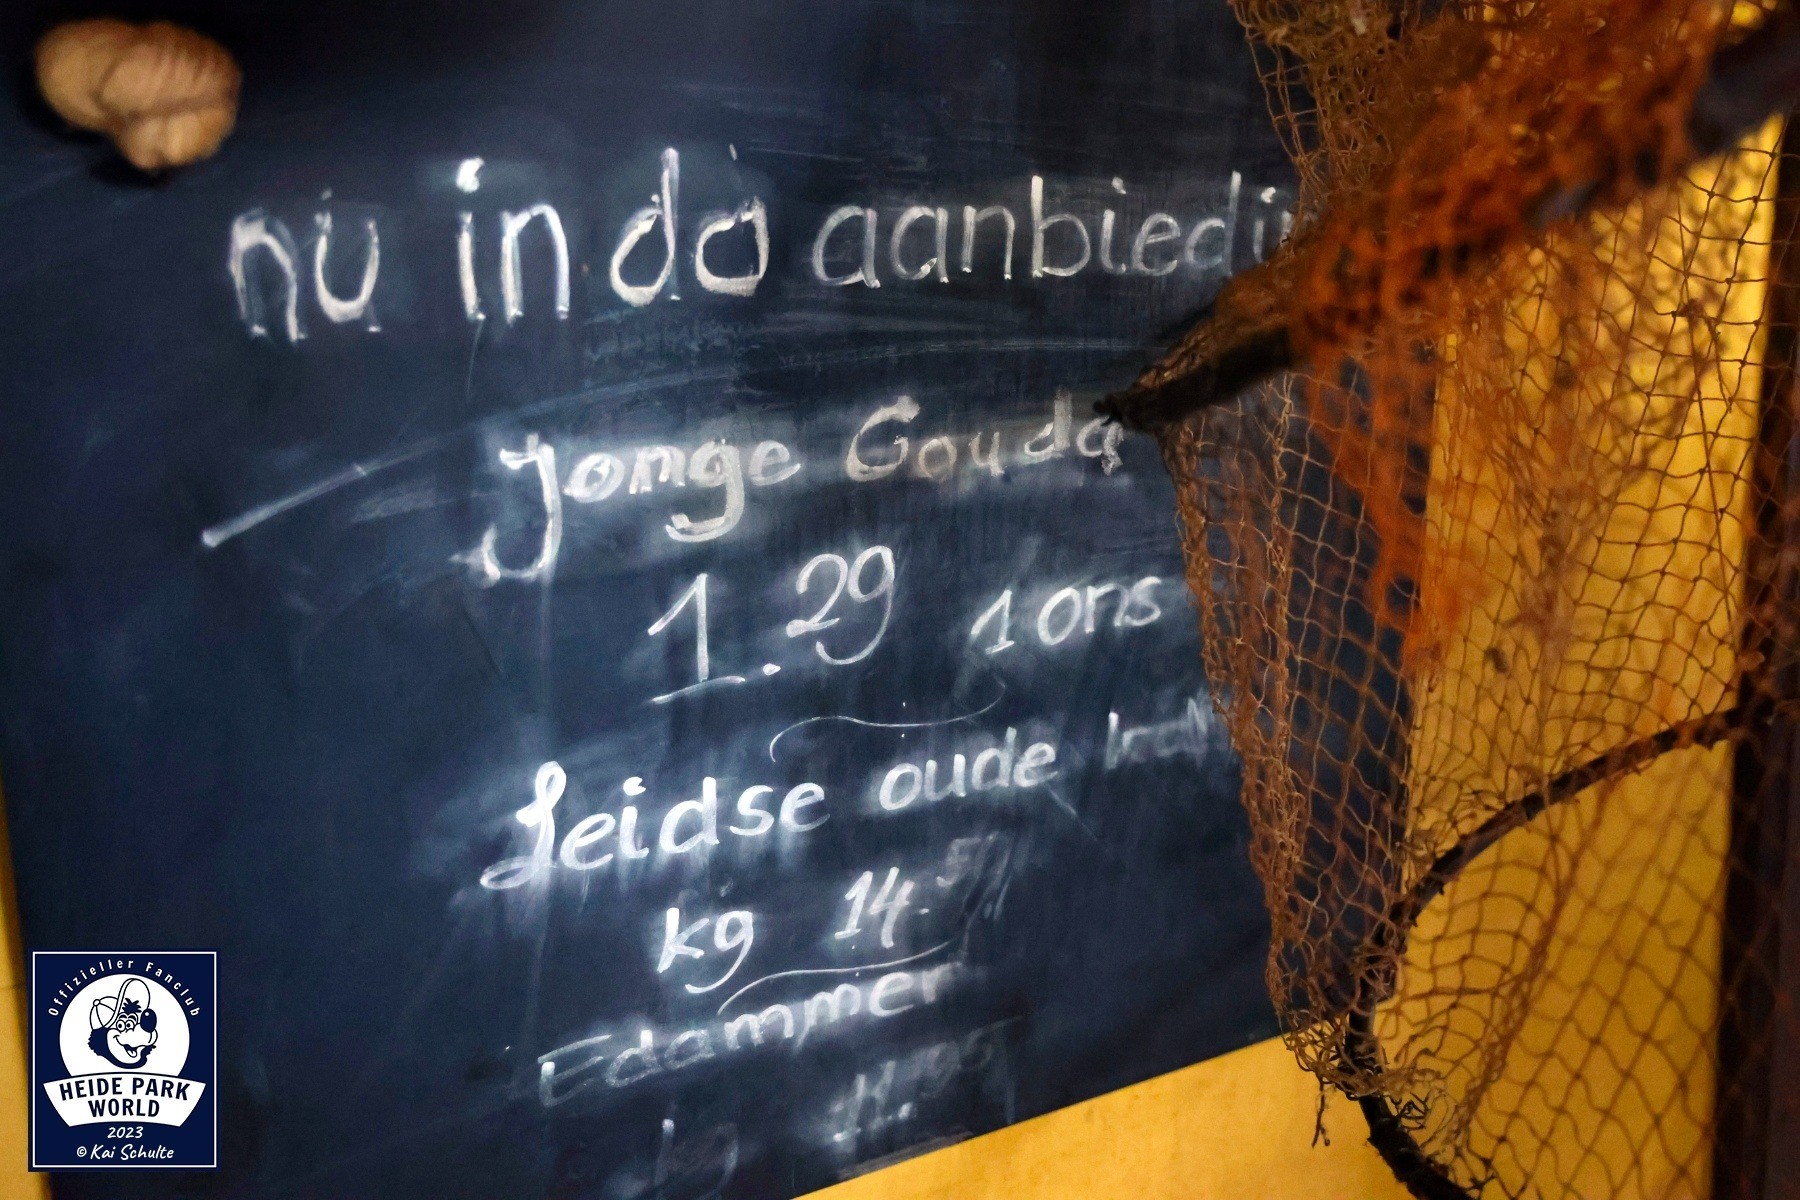 nu in da aanbiedi
Jonge Gouda
1.29 1 ons
Leidse oude
kg 14.
Edammer
kg 11.95
Offizieller Fanclub
HEIDE PARK
WORLD
2023
© Kai Schulte